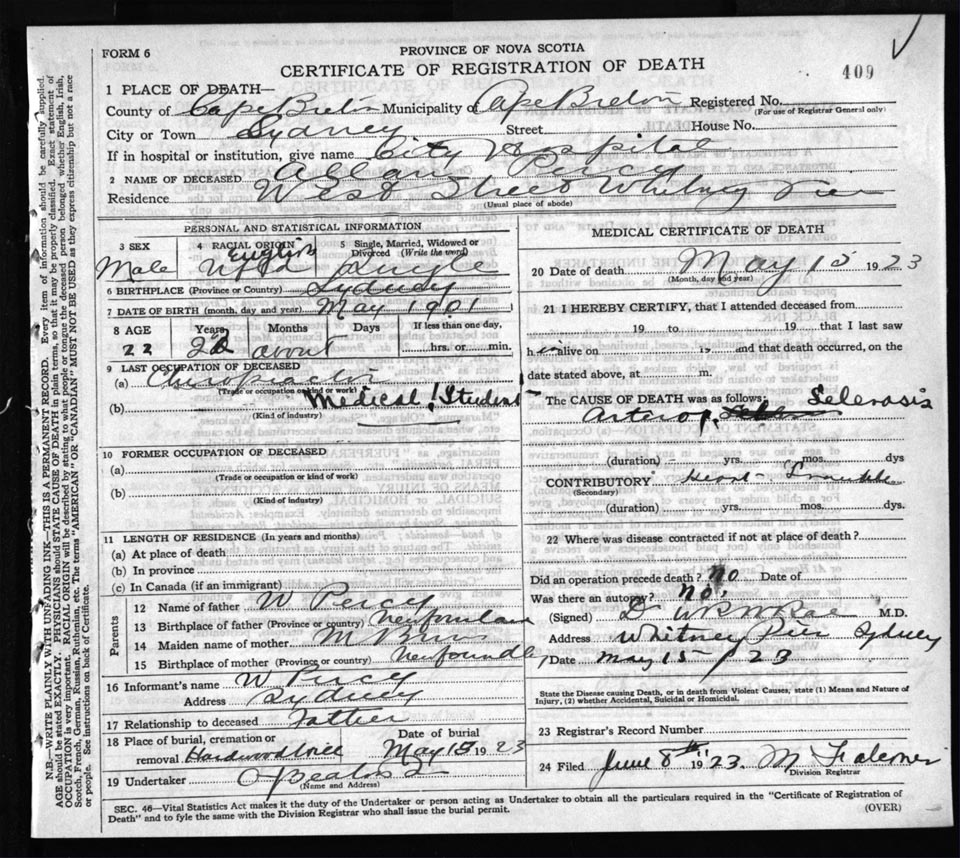 FORM 6
PROVINCE OF NOVA SCOTIA
CERTIFICATE OF REGISTRATION OF DEATH
409
1 PLACE OF DEATH—
County of Cape Breton Municipality of Cape Breton Registered No.
(For use of Registrar General only)
City or Town Sydney Street House No.
If in hospital or institution, give name City Hospital
2 NAME OF DECEASED Allan Percy
Residence West Street Whitney Pier
(Usual place of abode)
PERSONAL AND STATISTICAL INFORMATION
3 SEX Male
4 RACIAL ORIGIN English Nfld
5 Single, Married, Widowed or Divorced (Write the word) Single
6 BIRTHPLACE (Province or Country) Sydney
7 DATE OF BIRTH (month, day and year) May 1901
8 AGE Years Months Days If less than one day,
22 22 about hrs. or min.
9 LAST OCCUPATION OF DECEASED
(a) Chiropractor
(Trade or occupation or kind or work)
Medical! Student
(b)
(Kind of industry)
10 FORMER OCCUPATION OF DECEASED
(a)
(Trade or occupation or kind of work)
(b)
(Kind of industry)
11 LENGTH OF RESIDENCE (In years and months)
(a) At place of death
(b) In province
(c) In Canada (if an immigrant)
Parents
12 Name of father W Percy
13 Birthplace of father (Province or country) Newfoundland
14 Maiden name of mother M
15 Birthplace of mother (Province or country) Newfoundl
16 Informant's name W Percy
Address Sydney
17 Relationship to deceased Father
18 Place of burial, cremation or removal Hardwood Hill
Date of burial May 15 1923
19 Undertaker
(Name and Address)
MEDICAL CERTIFICATE OF DEATH
20 Date of death May 15 1923
(Month, day and year)
21 I HEREBY CERTIFY, that I attended deceased from
19 to 19 that I last saw
h alive on 19 and that death occurred, on the
date stated above, at m.
The CAUSE OF DEATH was as follows: Sclerosis
Arterio
(duration) yrs. mos. dys
CONTRIBUTORY Heart Trouble
(Secondary)
(duration) yrs. mos. dys.
22 Where was disease contracted if not at place of death?
Did an operation precede death? No Date of
Was there an autopsy? No.
(Signed) Dr M.D.
Address Whitney Pier Sydney
Date May 15 / 23
State the Disease causing Death, or in death from Violent Causes, state (1) Means and Nature of
Injury, (2) whether Accidental, Suicidal or Homicidal.
23 Registrar's Record Number
24 Filed June 8th 1923. M Falconer
Division Registrar
SEC. 46—Vital Statistics Act makes it the duty of the Undertaker or person acting as Undertaker to obtain all the particulars required in the "Certificate of Registration of
Death" and to fyle the same with the Division Registrar who shall issue the burial permit.
(OVER)
N.B.—WRITE PLAINLY WITH UNFADING INK—THIS IS A PERMANENT RECORD. Every item of information should be carefully supplied.
AGE should be stated EXACTLY. PHYSICIANS should STATE CAUSE OF DEATH in plain terms, so that it may be properly classified. Exact statement of
OCCUPATION is very important. RACIAL ORIGIN will be described by stating to what people or tongue the deceased person belonged whether English, Irish,
Scotch, French, German, Russian, Ruthenian, etc. The terms "AMERICAN" OR "CANADIAN" MUST NOT BE USED as they express citizenship but not a race
or people. See instructions on back of Certificate.